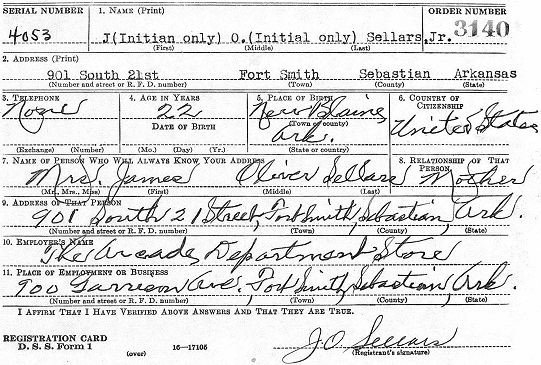 SERIAL NUMBER 1. NAME (Print) ORDER NUMBER
4053 J(Initian only) O.(Initial only) Sellars, Jr. 3140
(First) (Middle) (Last)
2. ADDRESS (Print)
901 South 21st Fort Smith Sebastian Arkansas
(Number and street or R. F. D. number) (Town) (County) (State)
3. TELEPHONE 4. AGE IN YEARS 5. PLACE OF BIRTH 6. COUNTRY OF CITIZENSHIP
None 22 New Blaine United States
DATE OF BIRTH (Town or county)
Ark.
(Exchange) (Number) (Mo.) (Day) (Yr.) (State or country)
7. NAME OF PERSON WHO WILL ALWAYS KNOW YOUR ADDRESS 8. RELATIONSHIP OF THAT PERSON
Mrs. James Oliver Sellars Mother
(Mr., Mrs., Miss) (First) (Middle) (Last)
9. ADDRESS OF THAT PERSON
901 South 21 Street, Fort Smith, Sebastian, Ark.
(Number and street or R. F. D. number) (Town) (County) (State)
10. EMPLOYER'S NAME
The Arcade Department Store
11. PLACE OF EMPLOYMENT OR BUSINESS
900 Garrison Ave. Fort Smith, Sebastian, Ark.
(Number and street or R. F. D. number) (Town) (County) (State)
I AFFIRM THAT I HAVE VERIFIED ABOVE ANSWERS AND THAT THEY ARE TRUE.
REGISTRATION CARD
D. S. S. Form 1 16—17105 J.O. Sellars
(over) (Registrant's signature)